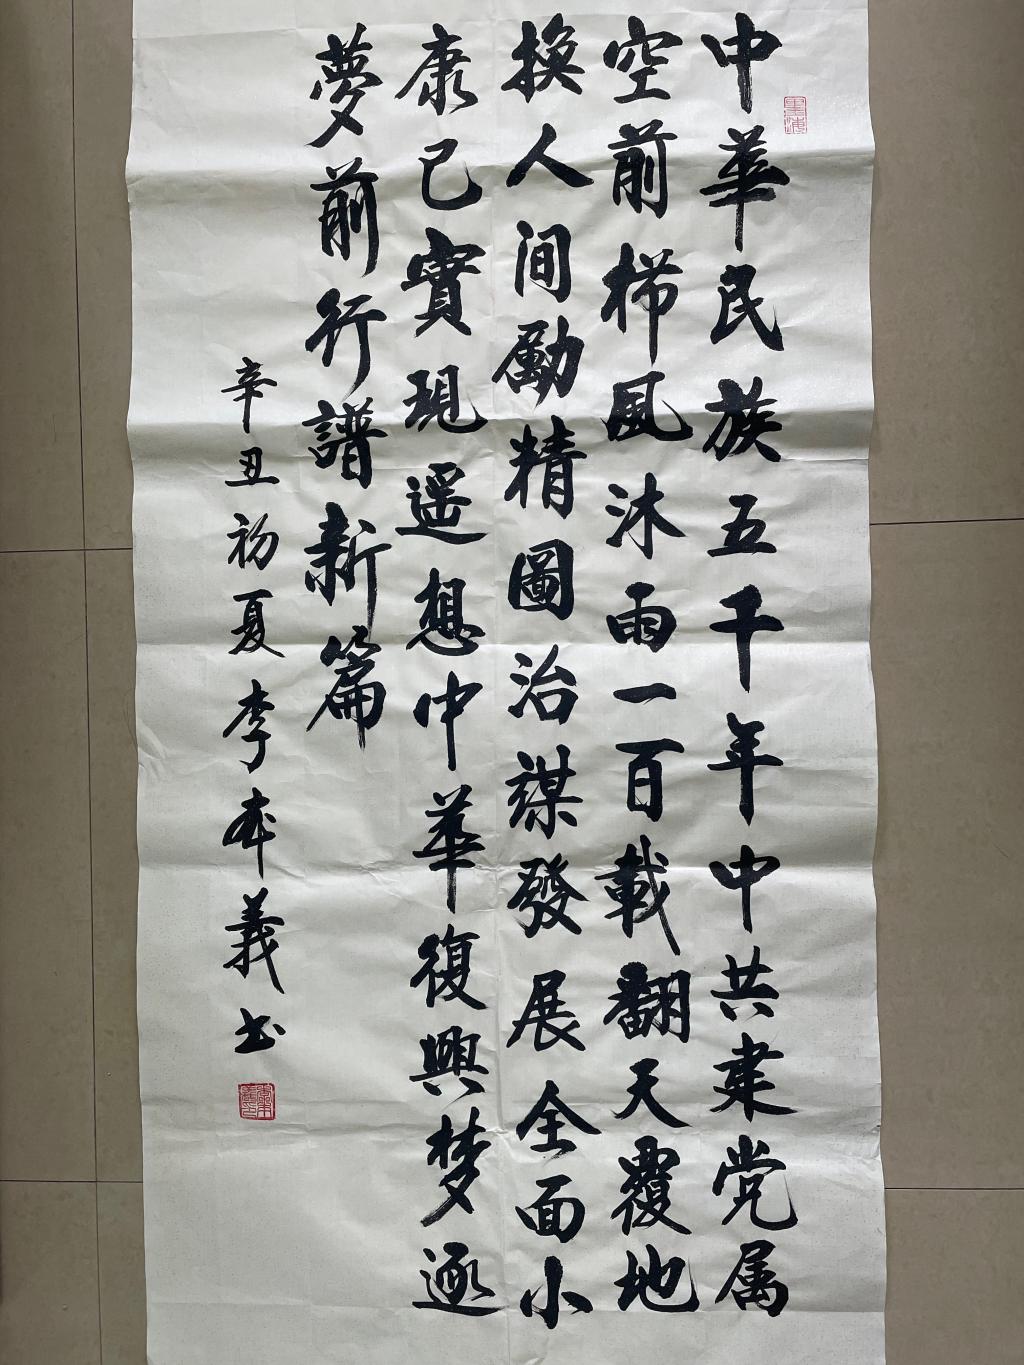 中華民族五千年中共建党属
空前栉風沐雨一百載翻天覆地
换人间勵精圖治謀發展全面小
康已實現遥想中華復興梦逐
夢前行譜新篇
辛丑初夏李本義书
墨海